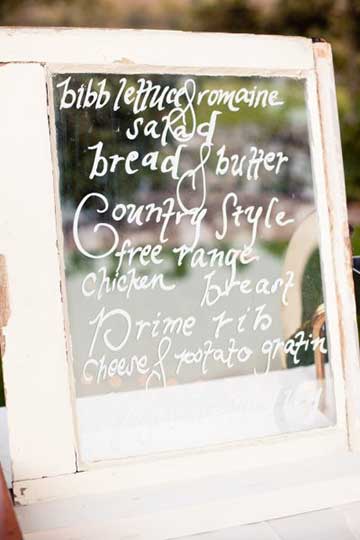 bibb lettuce & romaine
salad
bread & butter
Country Style
free range
chicken breast
Prime rib
cheese & potato gratin